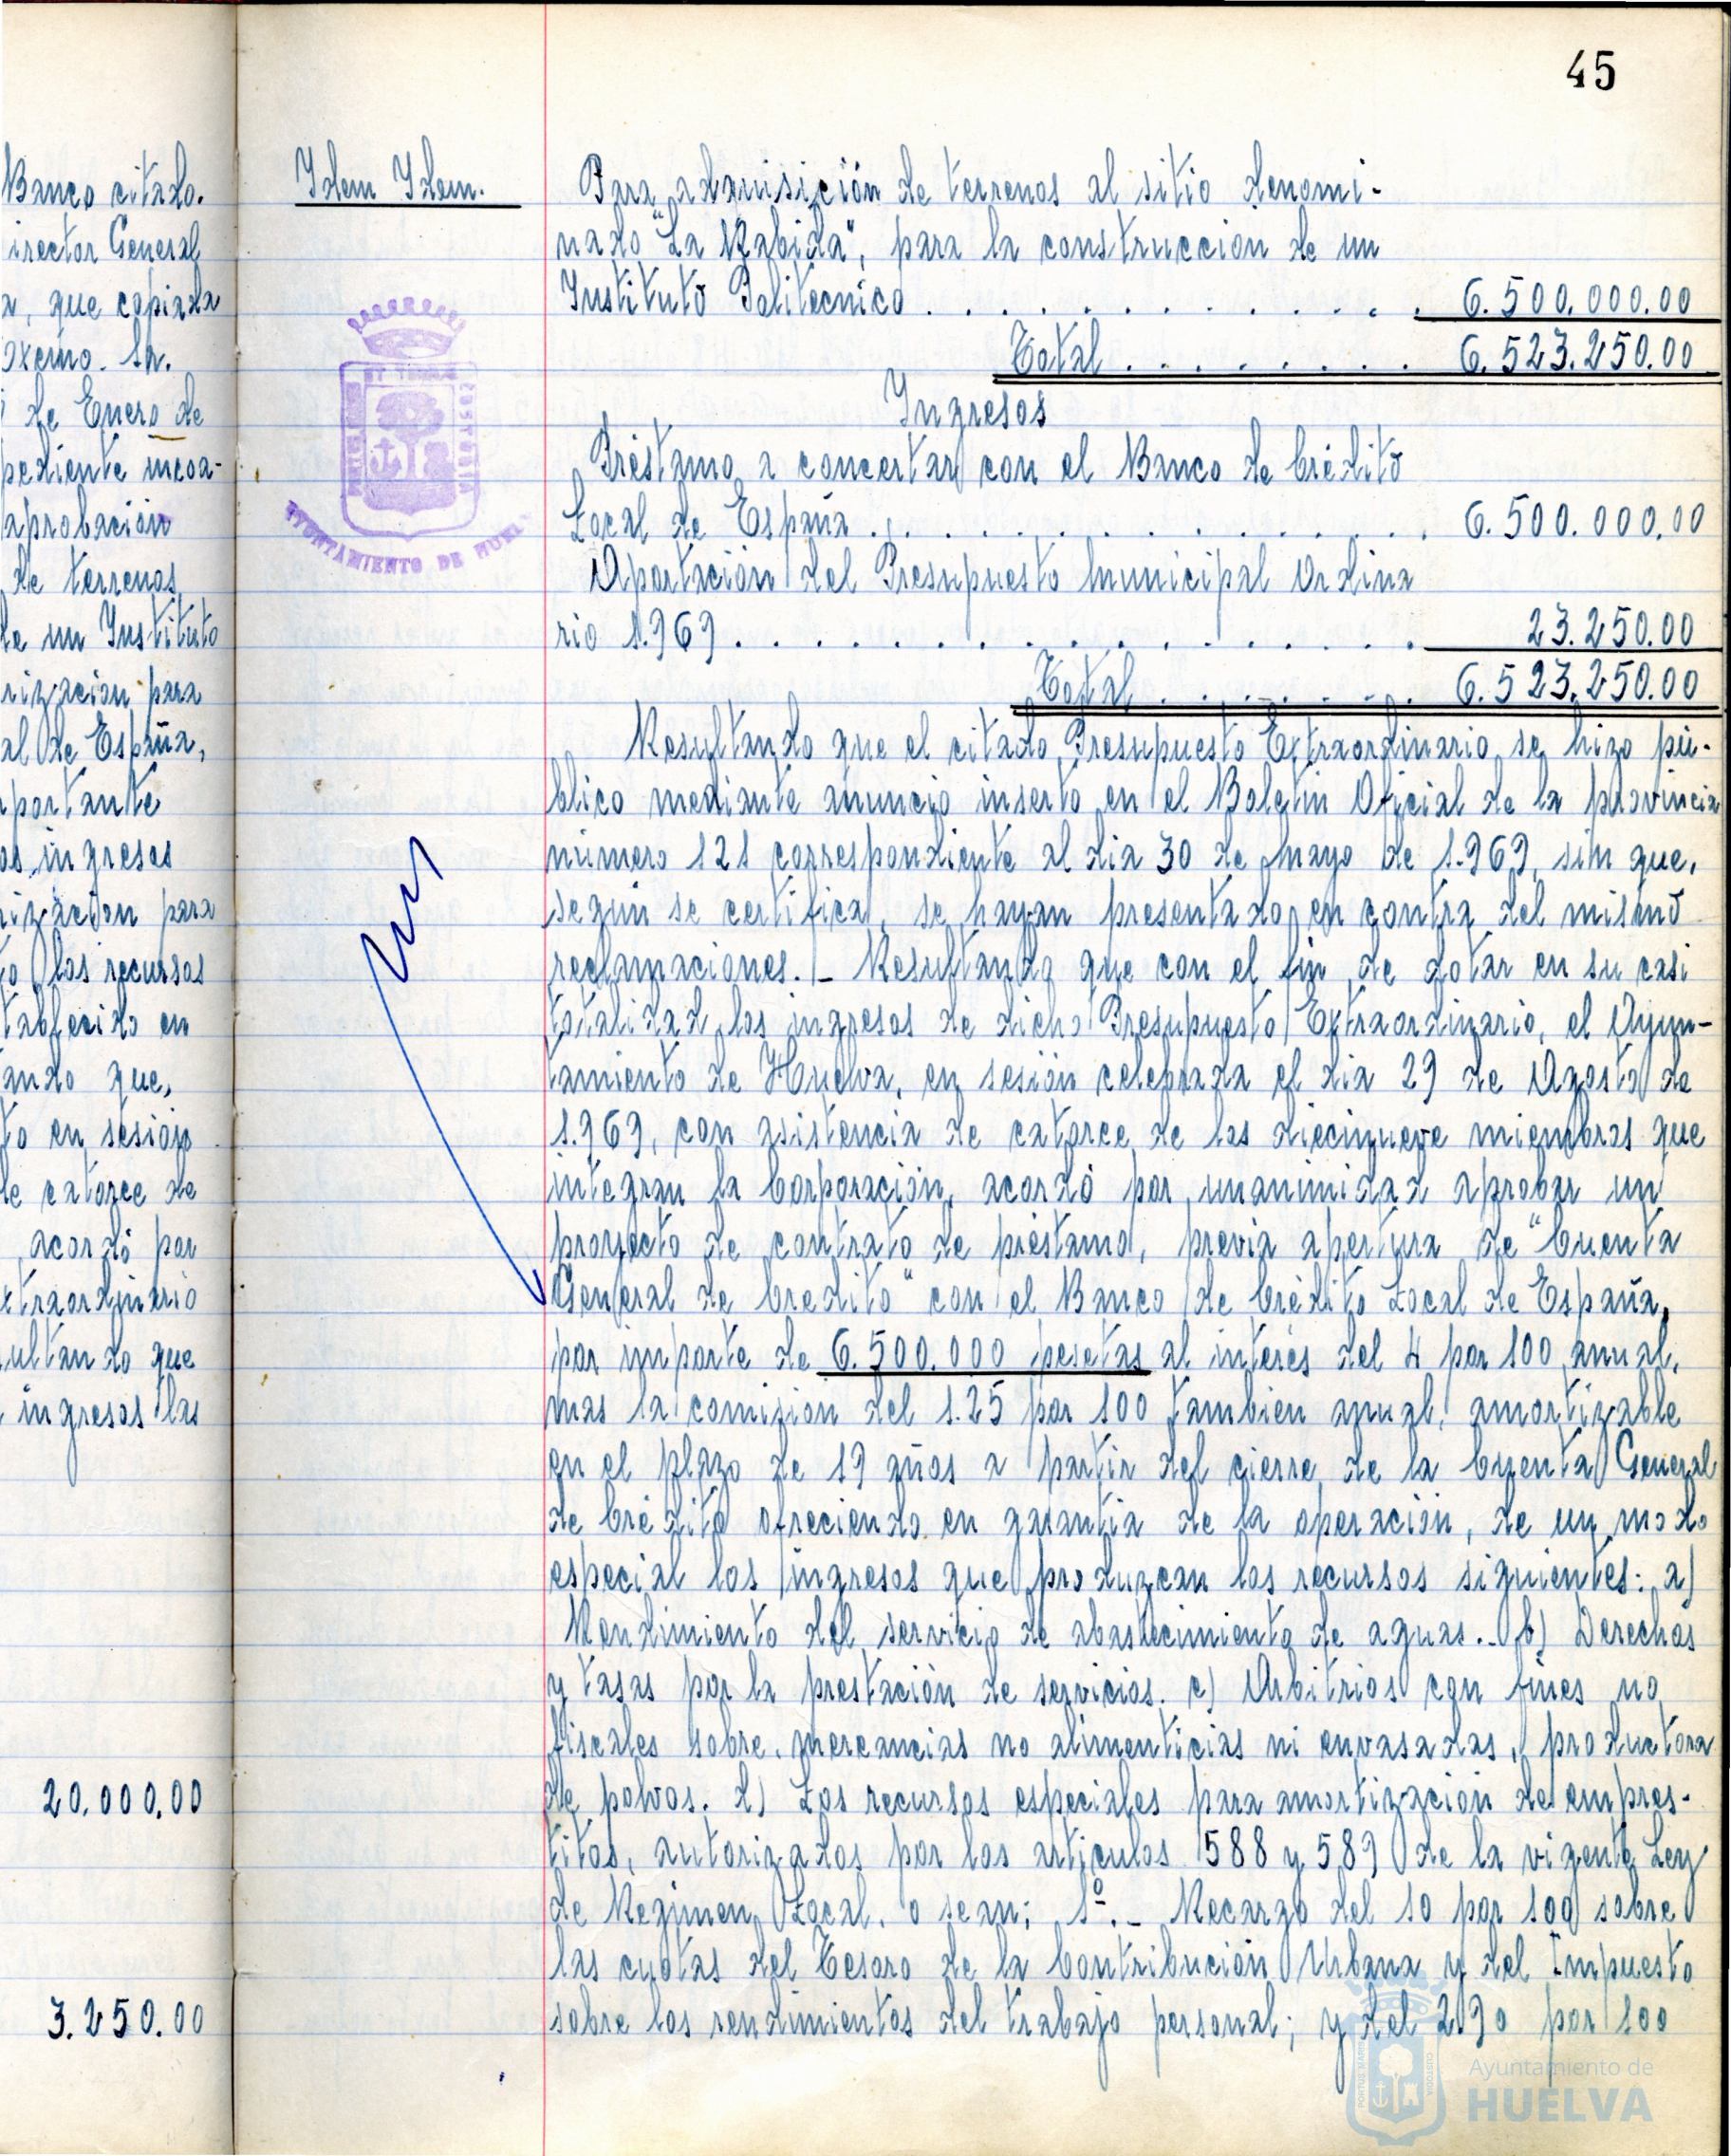 45
Banco citado.
irector General
a, que copiada
Excmo. Sr.
de Enero de
pediente incoa-
aprobación
de terrenos
de un Instituto
rización para
al de España,
portante
os ingresos
rización para
to los recursos
tablecido en
ando que,
to en sesión
de catorce de
, acordó por
xtraordinario
ultando que
ingresos las
20.000,00
3.250.00
Idem Idem.
AYUNTAMIENTO DE HUEL
Para adquisición de terrenos al sitio denomi-
nado "La Rabida", para la construcción de un
Instituto Politecnico . . . . . . . . . . 6.500.000.00
Total . . . . . . . . 6.523.250.00
Ingresos
Préstamo a concertar con el Banco de Crédito
Local de España . . . . . . . . . . . 6.500.000,00
Aportación del Presupuesto Municipal Ordina
rio 1.969 . . . . . . . . . . . . . 23.250.00
Total . . . . . . . 6.523.250.00
Resultando que el citado Presupuesto Extraordinario se hizo pú-
blico mediante anuncio inserto en el Boletin Oficial de la provincia
número 121 correspondiente al dia 30 de Mayo de 1.969, sin que,
según se certifica, se hayan presentado en contra del mismo
reclamaciones.- Resultando que con el fin de dotar en su casi
totalidad los ingresos de dicho Presupuesto Extraordinario, el Ayun-
tamiento de Huelva, en sesión celebrada el dia 29 de Agosto de
1.969, con asistencia de catorce de los diecinueve miembros que
integran la Corporación, acordó por unanimidad aprobar un
proyecto de contrato de préstamo, previa apertura de "Cuenta
General de Credito" con el Banco de Crédito Local de España,
por importe de 6.500.000 pesetas al interés del 4 por 100 anual,
mas la comision del 1.25 por 100 tambien anual, amortizable
en el plazo de 19 años a partir del cierre de la Cuenta General
de Crédito ofreciendo en garantía de la operación, de un modo
especial los ingresos que produzcan los recursos siguientes: a)
Rendimiento del servicio de abastecimiento de aguas.. b) Derechos
y tasas por la prestación de servicios. c) Arbitrios con fines no
fiscales sobre mercancias no alimenticias ni envasadas, productora
de polvos. d) Los recursos especiales para amortización de empres-
titos, autorizados por los articulos 588 y 589 de la vigente Ley
de Regimen Local, o sean; 1º.- Recargo del 10 por 100 sobre
las cuotas del Tesoro de la Contribución Urbana y del Impuesto
sobre los rendimientos del trabajo personal; y del 2.90 por 100
Ayuntamiento de
HUELVA